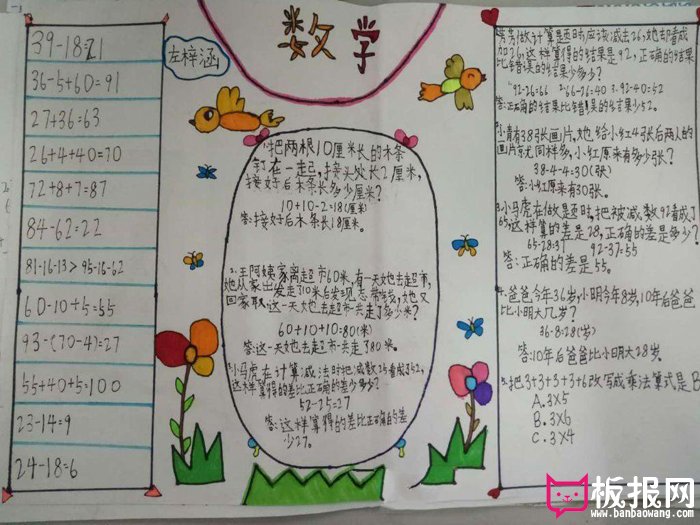 数学
左梓涵
39-18=21
36-5+60=91
27+36=63
26+4+40=70
72+8+7=87
84-62=22
81-16-13>95-16-62
60-10+5=55
93-(70-4)=27
55+40+5=100
23-14=9
24-18=6
1.把两根10厘米长的木条
钉在一起,接头处长2厘米,
接好后木条长多少厘米?
10+10-2=18(厘米)
答:接好后木条长18厘米。
2.王阿姨家离超市60米,有一天她去超市,
她从家出发走了10米后发现忘带钱,她又
回家取,这一天她去超市一共走了多少米?
60+10+10=80(米)
答:这一天她去超市一共走了80米。
3.小马虎在计算减法时把减数25看成了52,
这样算得的差比正确的差少多少?
52-25=27
答:这样算得的差比正确的差
少27。
做计算题时,应该减去26,她却看成
加26,这样算得的结果是92,正确的结果
比错误的结果少多少?
92-26=66 2.66-26=40 3.92-40=52
答:正确的结果比错误的结果少52。
小青有38张画片,她给小红4张后两人的
画片就同样多,小红原来有多少张?
38-4-4=30(张)
答:小红原来有30张。
3.小马虎在做题时,把被减数92看成了
65,这样算的差是28,正确的差是多少?
65-28=37 92-37=55
答:正确的差是55。
4.爸爸今年36岁,小明今年8岁,10年后爸爸
比小明大几岁?
36-8=28(岁)
答:10年后爸爸比小明大28岁。
5.把3+3+3+3+6改写成乘法算式是B
A.3×5
B.3×6
C.3×4
板报网
www.banbaowang.com